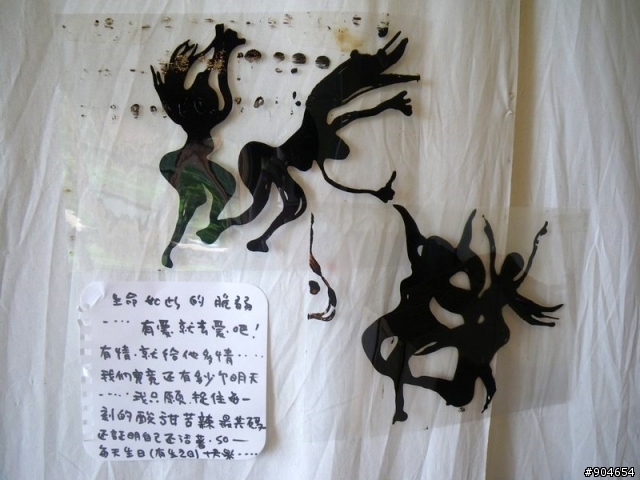 生命如此的脆弱
····有愛.就去愛.吧!
有情.就給他多情····
我們究竟還有多少个明天
····我只願.捉住每一
刻的酸甜苦辣.最共碼
还証明自己还活著.so—
每天生日(有生之日)快樂····
#904654